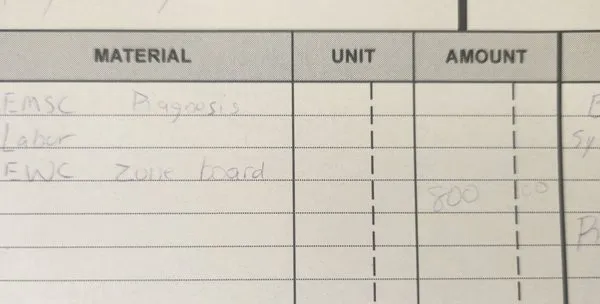 MATERIAL UNIT AMOUNT
EMSC Diagnosis
Labor Sy
EWC Zone board
800 00